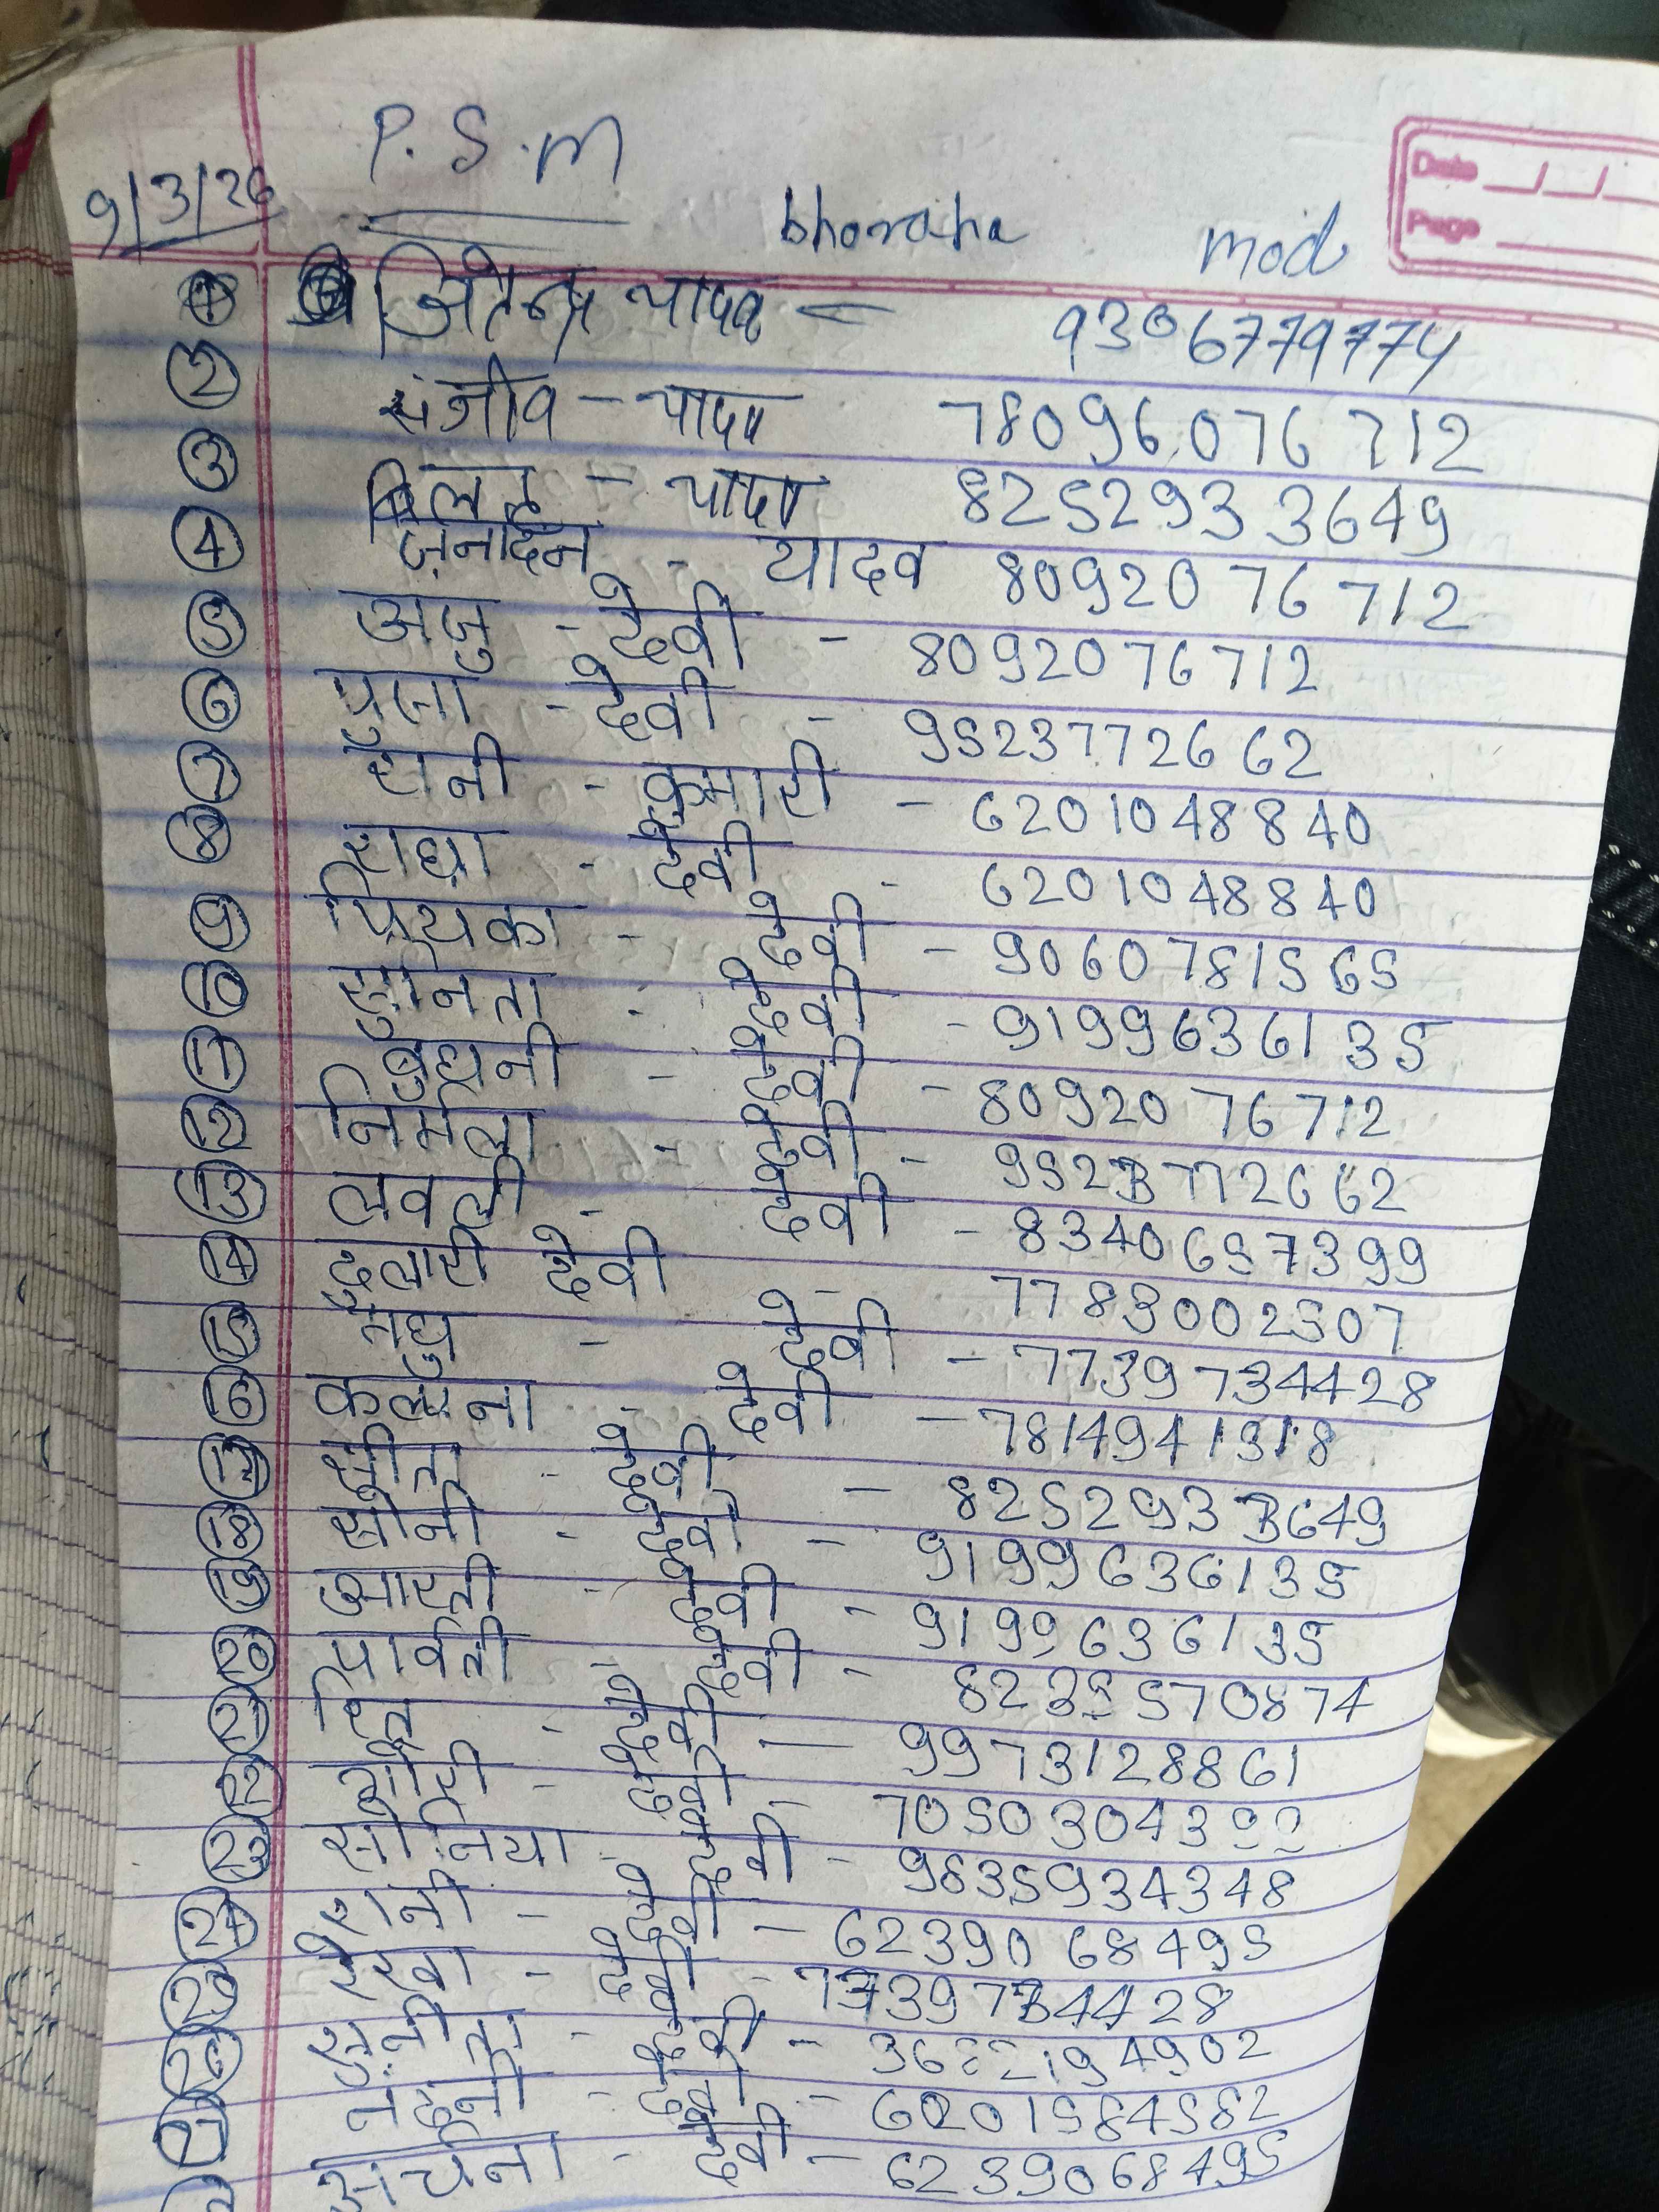 P. S. M
Date
9/3/26
Page
bhoraha mod
1 जितेन्द्र यादव = 9306779774
2 संजीव - यादव 78096076712
3 - यादव 8252933649
4 जनार्दन - यादव 8092076712
5 अजु - देवी - 8092076712
6 पुजा - देवी - 9523772662
7 रानी - कुमारी - 6201048840
8 राधा - देवी - 6201048840
9 प्रियका - देवी - 9060781565
10 सुनिता - देवी - 9199636135
11 बुधनी - देवी - 8092076712
12 निर्मला - देवी - 9523772662
13 लवली - देवी - 8340657399
14 दुलारी देवी - 7783002307
15 मधु - देवी - 7739734428
16 कल्पना - देवी - 7814941318
17 सीता - देवी - 8252933649
18 सोनी - देवी - 9199636135
19 आरती - देवी - 9199636135
20 पार्वती - देवी -
21 - देवी - 9973128861
22 - देवी -
23 सोनिया - देवी - 9635934348
24 रानी - देवी - 6239068495
25 रेखा - देवी - 7739734428
26 सुनीता - देवी -
27 नंदनी - देवी - 6201584582
अर्चना - देवी - 6239068495